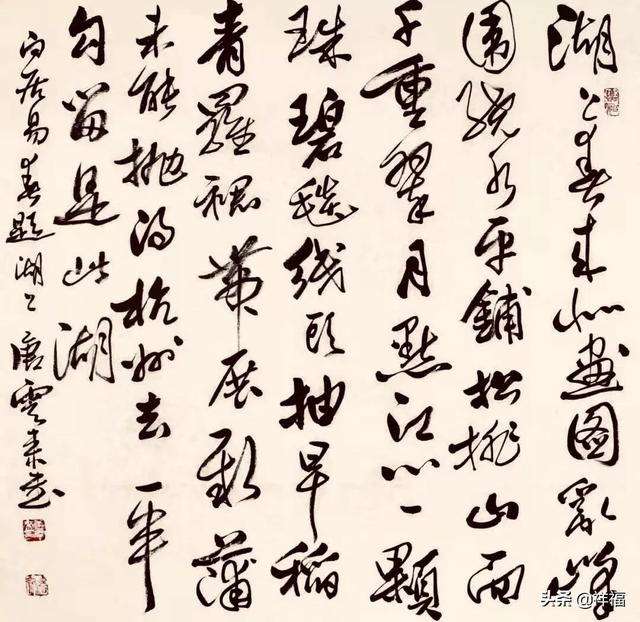 湖上春来似畫圖亂峰
圍繞水平鋪松排山面
千重翠月點江心一顆
珠碧毯线头抽早稻
青羅裙帶展新蒲
未能抛得杭州去一半
勾留是此湖
白居易春题湖上 唐雲来书
头条 @祥福